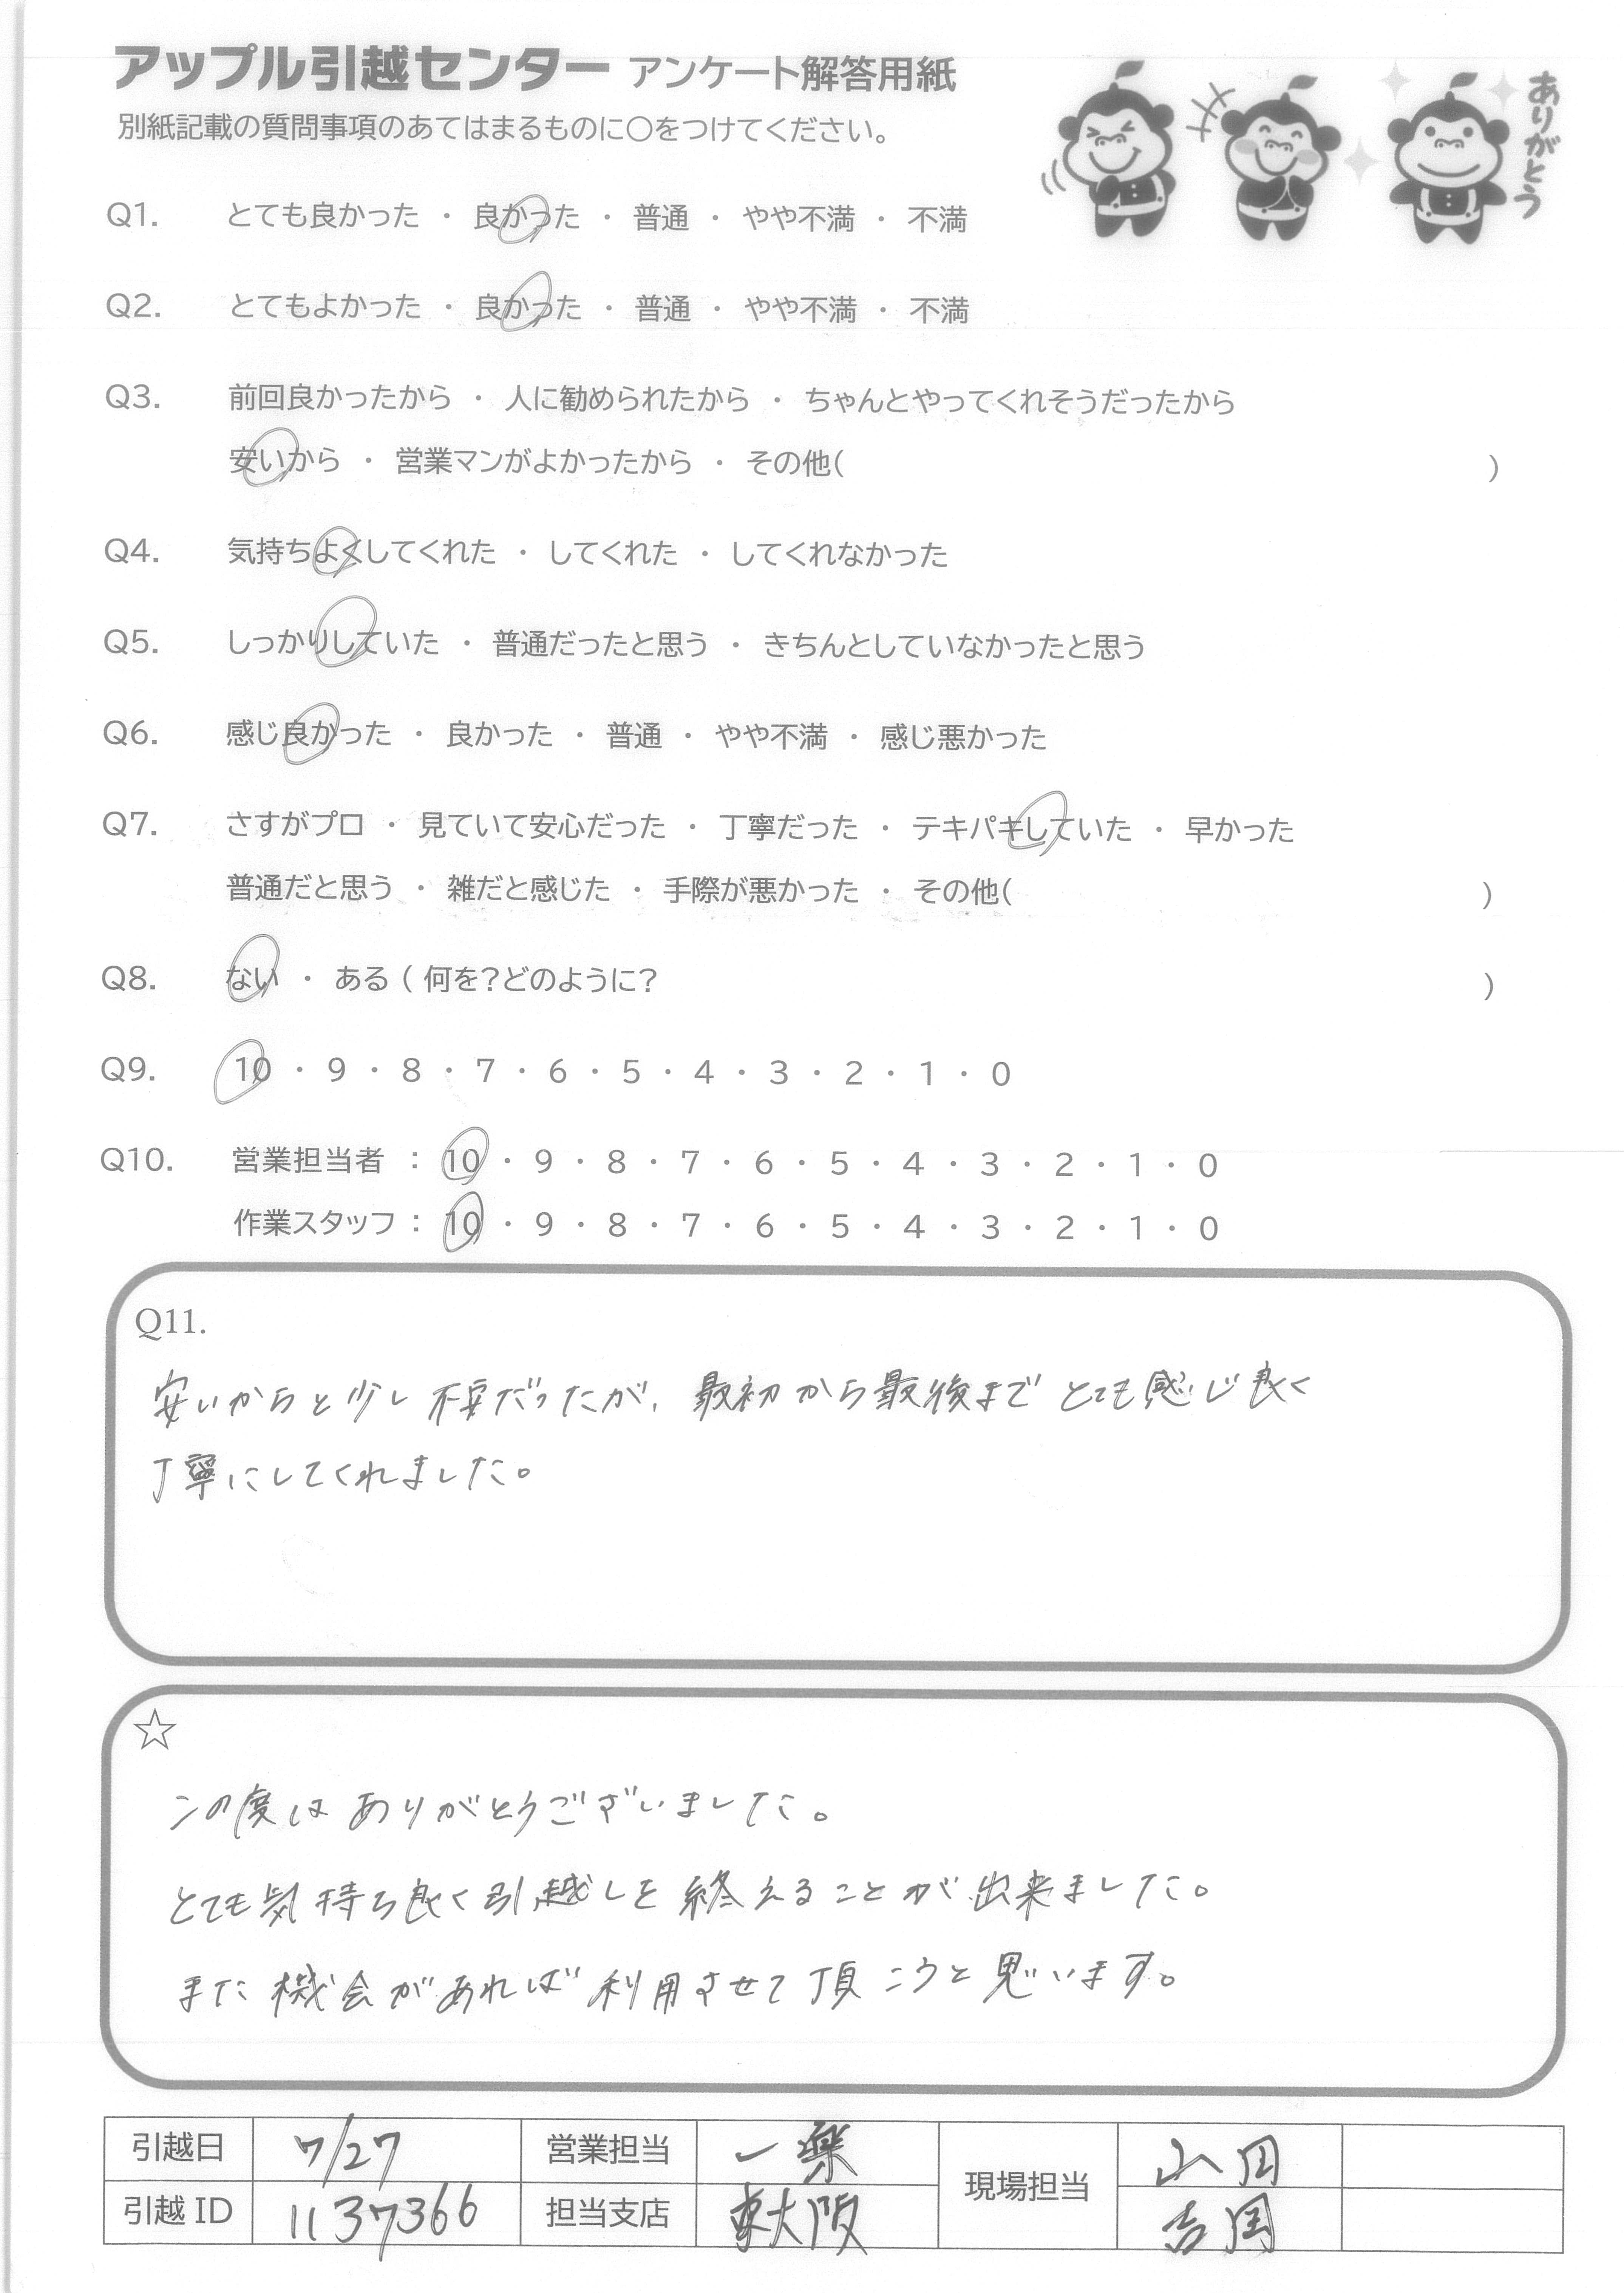 アップル引越センター アンケート解答用紙
別紙記載の質問事項のあてはまるものに○をつけてください。
ありがとう
Q1. とても良かった ・ 良かった ・ 普通 ・ やや不満 ・ 不満
Q2. とてもよかった ・ 良かった ・ 普通 ・ やや不満 ・ 不満
Q3. 前回良かったから ・ 人に勧められたから ・ ちゃんとやってくれそうだったから
安いから ・ 営業マンがよかったから ・ その他( )
Q4. 気持ちよくしてくれた ・ してくれた ・ してくれなかった
Q5. しっかりしていた ・ 普通だったと思う ・ きちんとしていなかったと思う
Q6. 感じ良かった ・ 良かった ・ 普通 ・ やや不満 ・ 感じ悪かった
Q7. さすがプロ ・ 見ていて安心だった ・ 丁寧だった ・ テキパキしていた ・ 早かった
普通だと思う ・ 雑だと感じた ・ 手際が悪かった ・ その他( )
Q8. ない ・ ある ( 何を?どのように? )
Q9. 10 ・ 9 ・ 8 ・ 7 ・ 6 ・ 5 ・ 4 ・ 3 ・ 2 ・ 1 ・ 0
Q10. 営業担当者 : 10 ・ 9 ・ 8 ・ 7 ・ 6 ・ 5 ・ 4 ・ 3 ・ 2 ・ 1 ・ 0
作業スタッフ : 10 ・ 9 ・ 8 ・ 7 ・ 6 ・ 5 ・ 4 ・ 3 ・ 2 ・ 1 ・ 0
Q11.
安いからと少し不安だったが、最初から最後までとても感じ良く
丁寧にしてくれました。
☆
この度はありがとうございました。
とても気持ち良く引越しを終えることが出来ました。
また機会があれば利用させて頂こうと思います。
引越日 7/27 営業担当 一楽 現場担当 山田
引越ID 1137366 担当支店 東大阪 吉岡